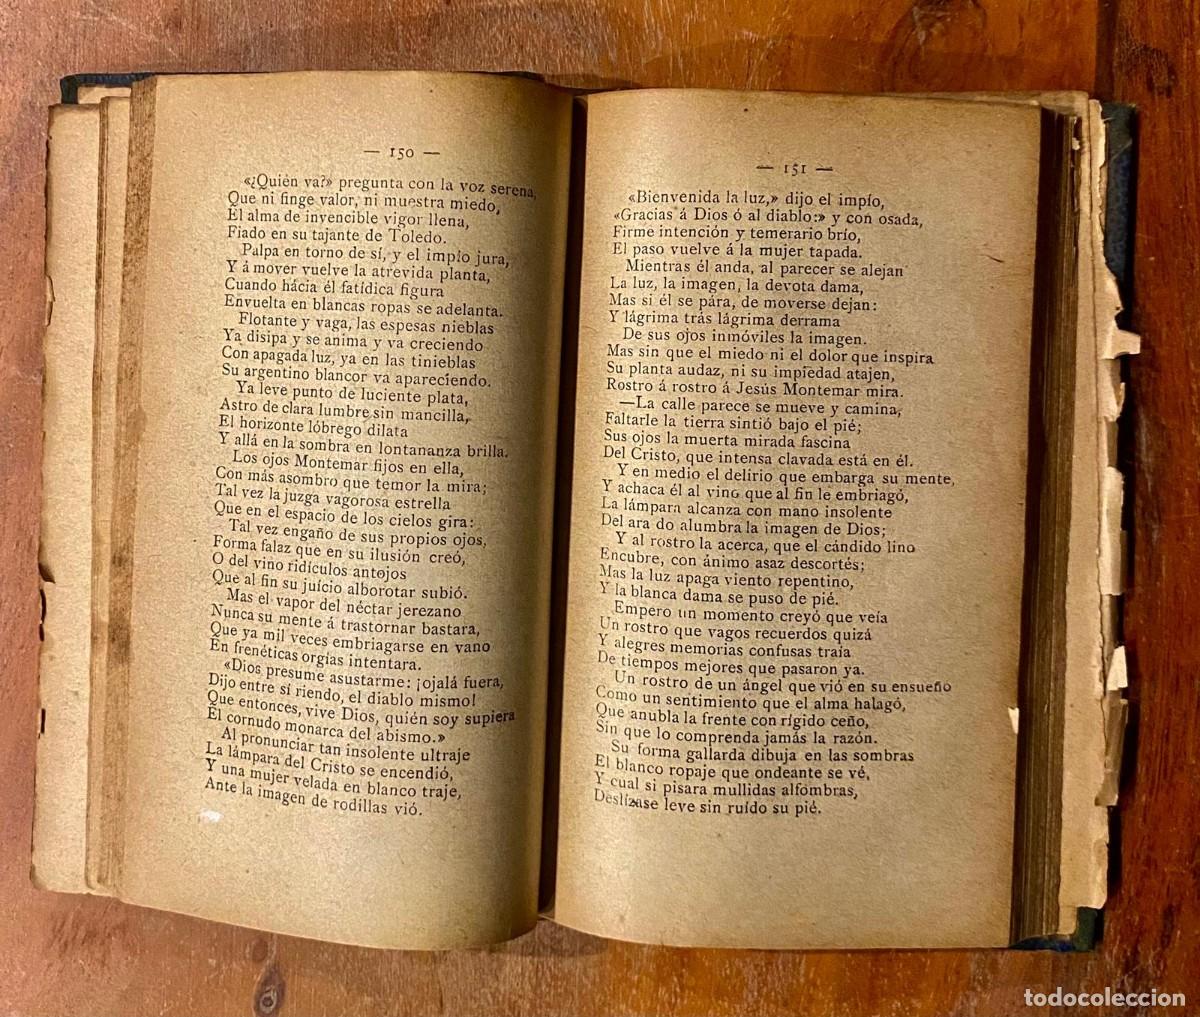 — 150 —
«¿Quién va?» pregunta con la voz serena,
Que ni finge valor, ni muestra miedo,
El alma de invencible vigor llena,
Fiado en su tajante de Toledo.
Palpa en torno de sí, y el impío jura,
Y á mover vuelve la atrevida planta,
Cuando hácia él fatídica figura
Envuelta en blancas ropas se adelanta.
Flotante y vaga, las espesas nieblas
Ya disipa y se anima y va creciendo
Con apagada luz, ya en las tinieblas
Su argentino blancor va apareciendo.
Ya leve punto de luciente plata,
Astro de clara lumbre sin mancilla,
El horizonte lóbrego dilata
Y allá en la sombra en lontananza brilla.
Los ojos Montemar fijos en ella,
Con más asombro que temor la mira;
Tal vez la juzga vagorosa estrella
Que en el espacio de los cielos gira:
Tal vez engaño de sus propios ojos,
Forma falaz que en su ilusión creó,
O del vino ridículos antojos
Que al fin su juício alborotar subió.
Mas el vapor del néctar jerezano
Nunca su mente á trastornar bastara,
Que ya mil veces embriagarse en vano
En frenéticas orgías intentara.
«Dios presume asustarme: ¡ojalá fuera,
Dijo entre sí riendo, el diablo mismo!
Que entonces, vive Dios, quién soy supiera
El cornudo monarca del abismo.»
Al pronunciar tan insolente ultraje
La lámpara del Cristo se encendió,
Y una mujer velada en blanco traje,
Ante la imagen de rodillas vió.
— 151 —
«Bienvenida la luz,» dijo el impío,
«Gracias á Dios ó al diablo:» y con osada,
Firme intención y temerario brío,
El paso vuelve á la mujer tapada.
Mientras él anda, al parecer se alejan
La luz, la imagen, la devota dama,
Mas si él se pára, de moverse dejan:
Y lágrima trás lágrima derrama
De sus ojos inmóviles la imagen.
Mas sin que el miedo ni el dolor que inspira
Su planta audaz, ni su impiedad atajen,
Rostro á rostro á Jesús Montemar mira.
—La calle parece se mueve y camina,
Faltarle la tierra sintió bajo el pié;
Sus ojos la muerta mirada fascina
Del Cristo, que intensa clavada está en él.
Y en medio el delirio que embarga su mente,
Y achaca él al vino que al fin le embriagó,
La lámpara alcanza con mano insolente
Del ara do alumbra la imagen de Dios;
Y al rostro la acerca, que el cándido lino
Encubre, con ánimo asaz descortés;
Mas la luz apaga viento repentino,
Y la blanca dama se puso de pié.
Empero un momento creyó que veía
Un rostro que vagos recuerdos quizá
Y alegres memorias confusas traía
De tiempos mejores que pasaron ya.
Un rostro de un ángel que vió en su ensueño
Como un sentimiento que el alma halagó,
Que anubla la frente con rígido ceño,
Sin que lo comprenda jamás la razón.
Su forma gallarda dibuja en las sombras
El blanco ropaje que ondeante se vé,
Y cual si pisara mullidas alfombras,
Deslízase leve sin ruído su pié.
todocoleccion